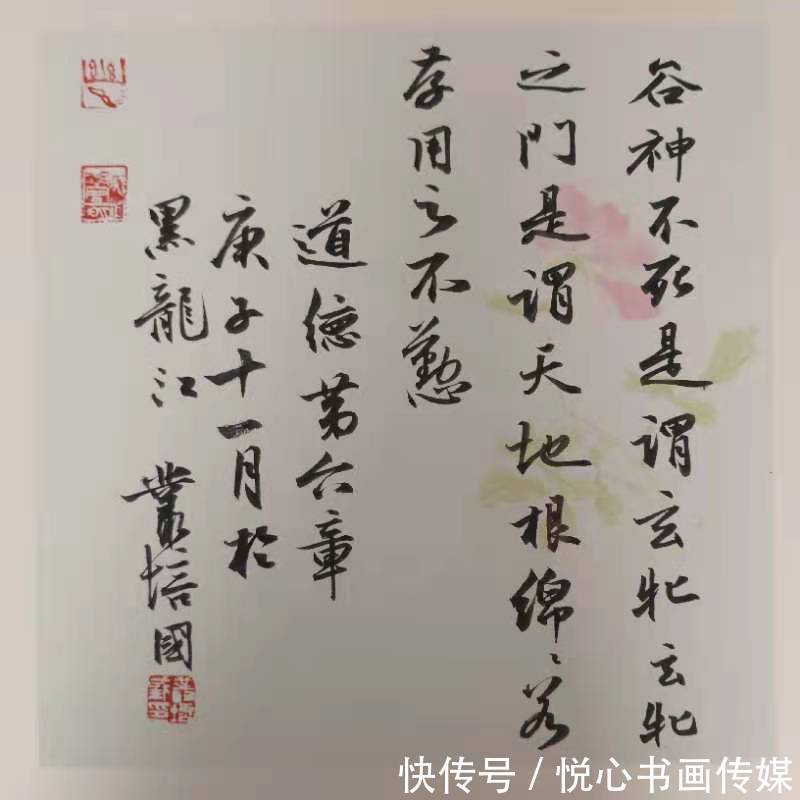 谷神不死是谓玄牝玄牝
之門是谓天地根绵〻若
存用之不勤
道德第六章
庚子十一月於
黑龍江 叢培國
快传号 / 悦心书画传媒